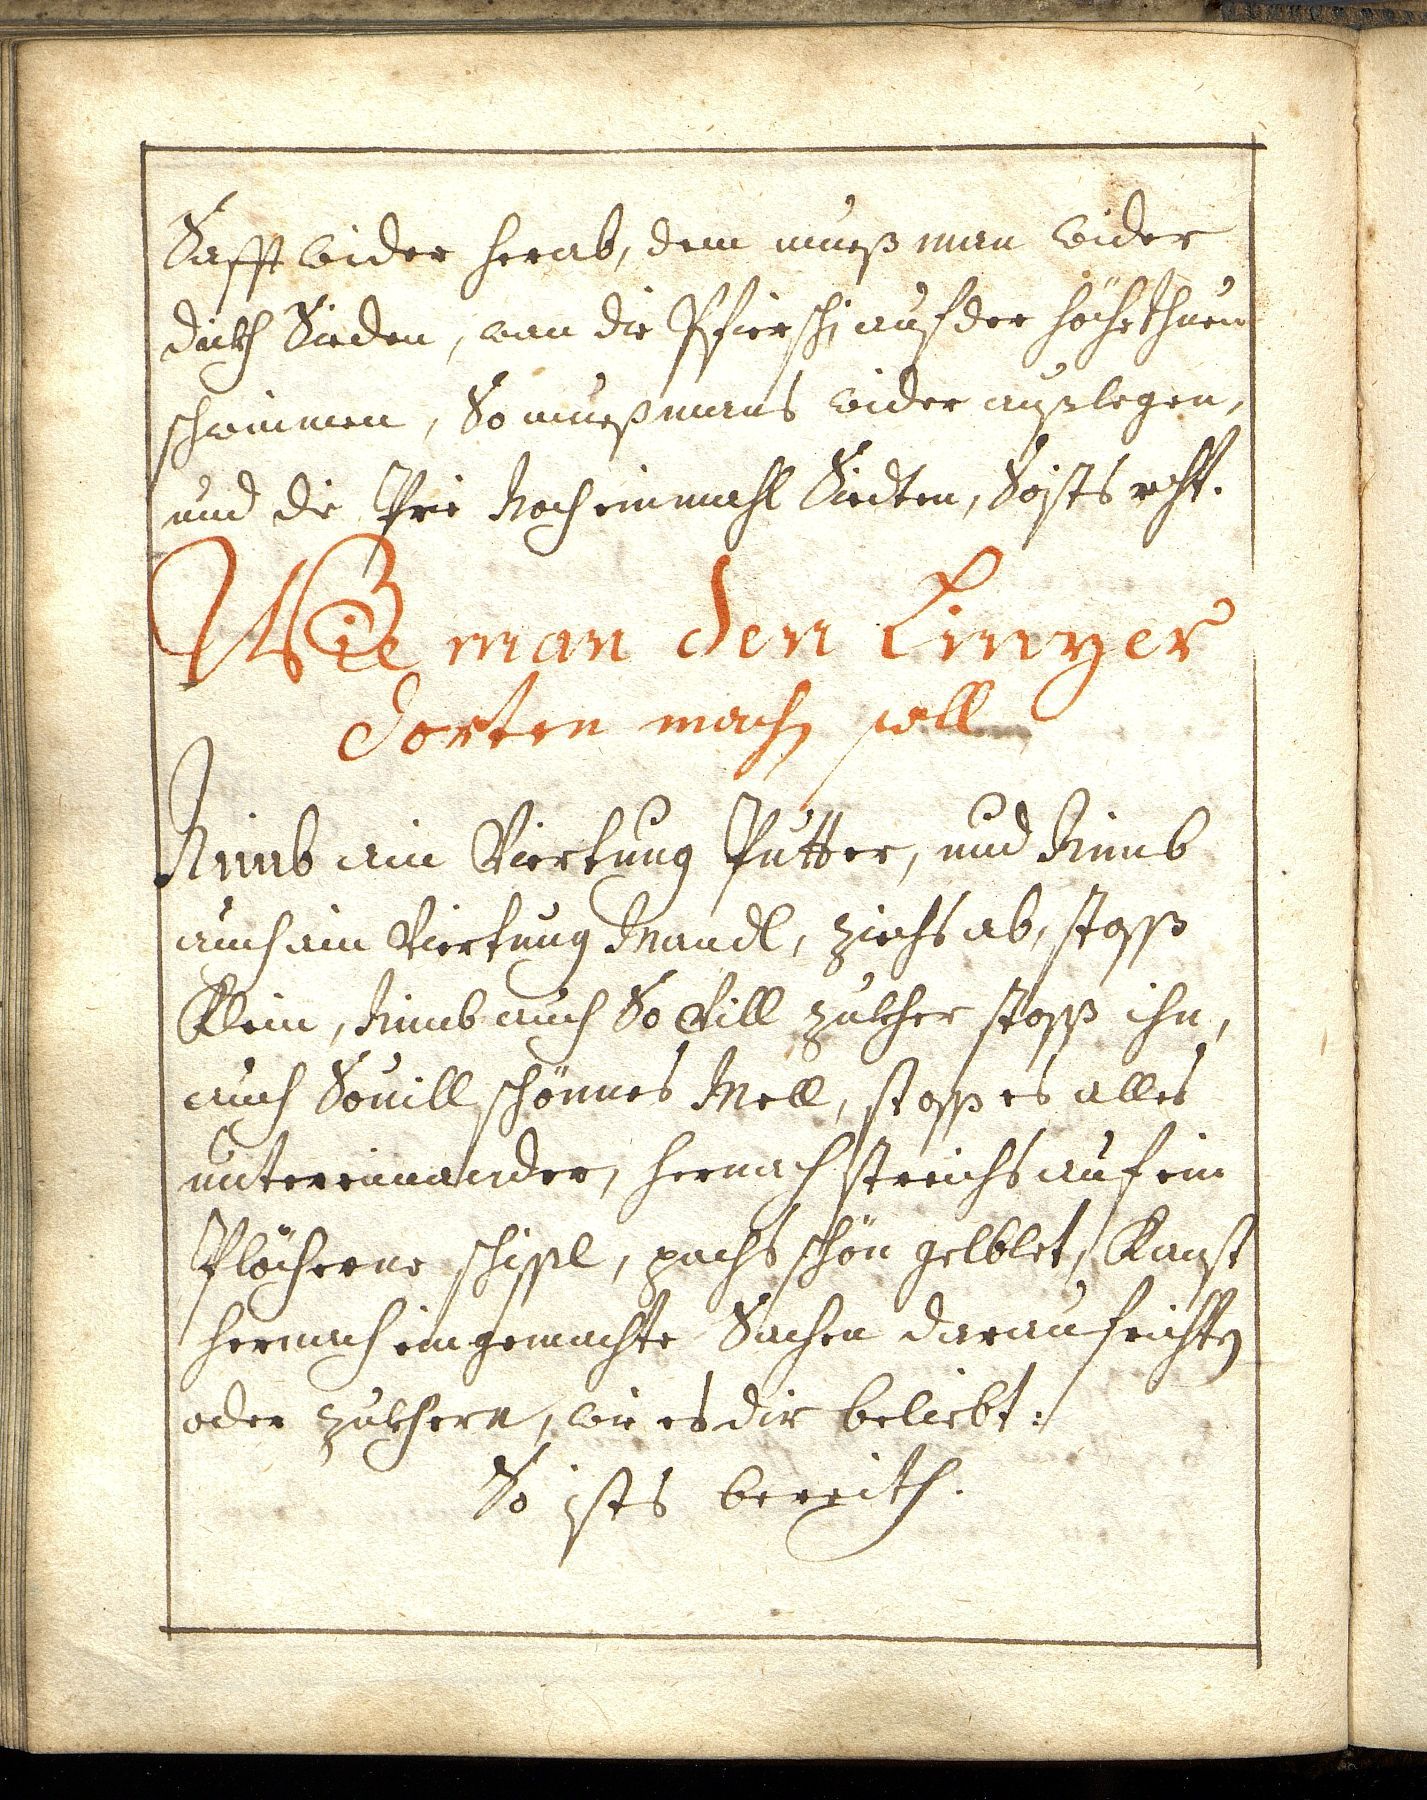 Safft wider herab, dem mueß man wider
dickh Sieden, wan die Pfierschi auf der höche thuen
schwimmen, So mueß mans wider außlegen,
und die Prie Noch einmahl Siedten, So ists recht.
Wie man den Linzer
Dorten mach soll
Nimb ain Viertung Putter, und Nimb
auch ain Viertung Mandl, ziechs ab, stoss
Klein, Nimb auch So Vill zukher stoss ihn,
auch Souill schönnes Mell, stoss es alles
untereinander, hernach streichs auf ein
Plöcherne schissl, pachs schön gelblet, Kanst
hernach eingemachte Sachen darauf richten
oder zukhern, wie es dir beliebt:
So ists bereith.